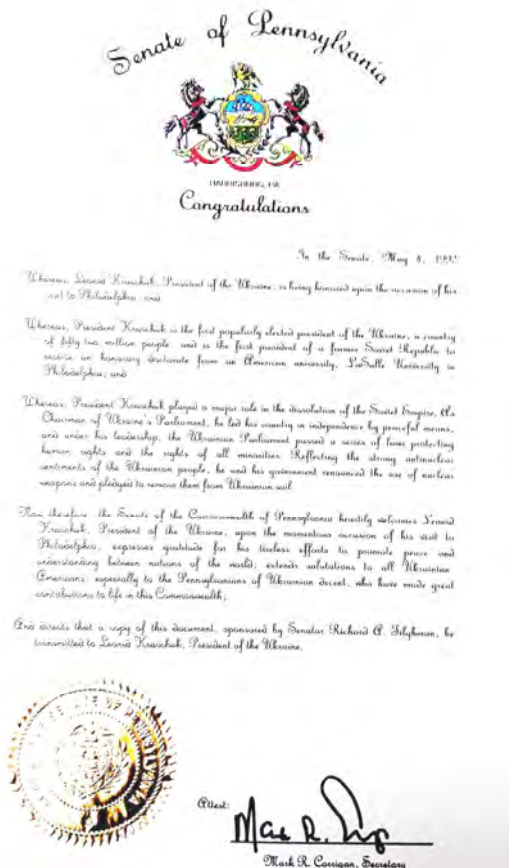 Senate of Pennsylvania
HARRISBURG, PA
Congratulations
In the Senate, May 8, 1992
Whereas, Leonid Kravchuk, President of the Ukraine, is being honored upon the occasion of his
visit to Philadelphia; and
Whereas, President Kravchuk is the first popularly elected president of the Ukraine, a country
of fifty two million people, and is the first president of a former Soviet Republic to
receive an honorary doctorate from an American university, LaSalle University in
Philadelphia; and
Whereas, President Kravchuk played a major role in the dissolution of the Soviet Empire. As
Chairman of Ukraine's Parliament, he led his country to independence by peaceful means,
and under his leadership, the Ukrainian Parliament passed a series of laws protecting
human rights and the rights of all minorities. Reflecting the strong antinuclear
sentiments of the Ukrainian people, he and his government renounced the use of nuclear
weapons and pledged to remove them from Ukrainian soil.
Now therefore, the Senate of the Commonwealth of Pennsylvania heartily welcomes Leonid
Kravchuk, President of the Ukraine, upon the momentous occasion of his visit to
Philadelphia; expresses gratitude for his tireless efforts to promote peace and
understanding between nations of the world; extends salutations to all Ukrainian
Americans, especially to the Pennsylvanians of Ukrainian decent, who have made great
contributions to life in this Commonwealth;
And directs that a copy of this document, sponsored by Senator Richard A. be
transmitted to Leonid Kravchuk, President of the Ukraine.
SENATE OF PENNSYLVANIA
Attest:
Mark R.
Mark R. Corrigan, Secretary